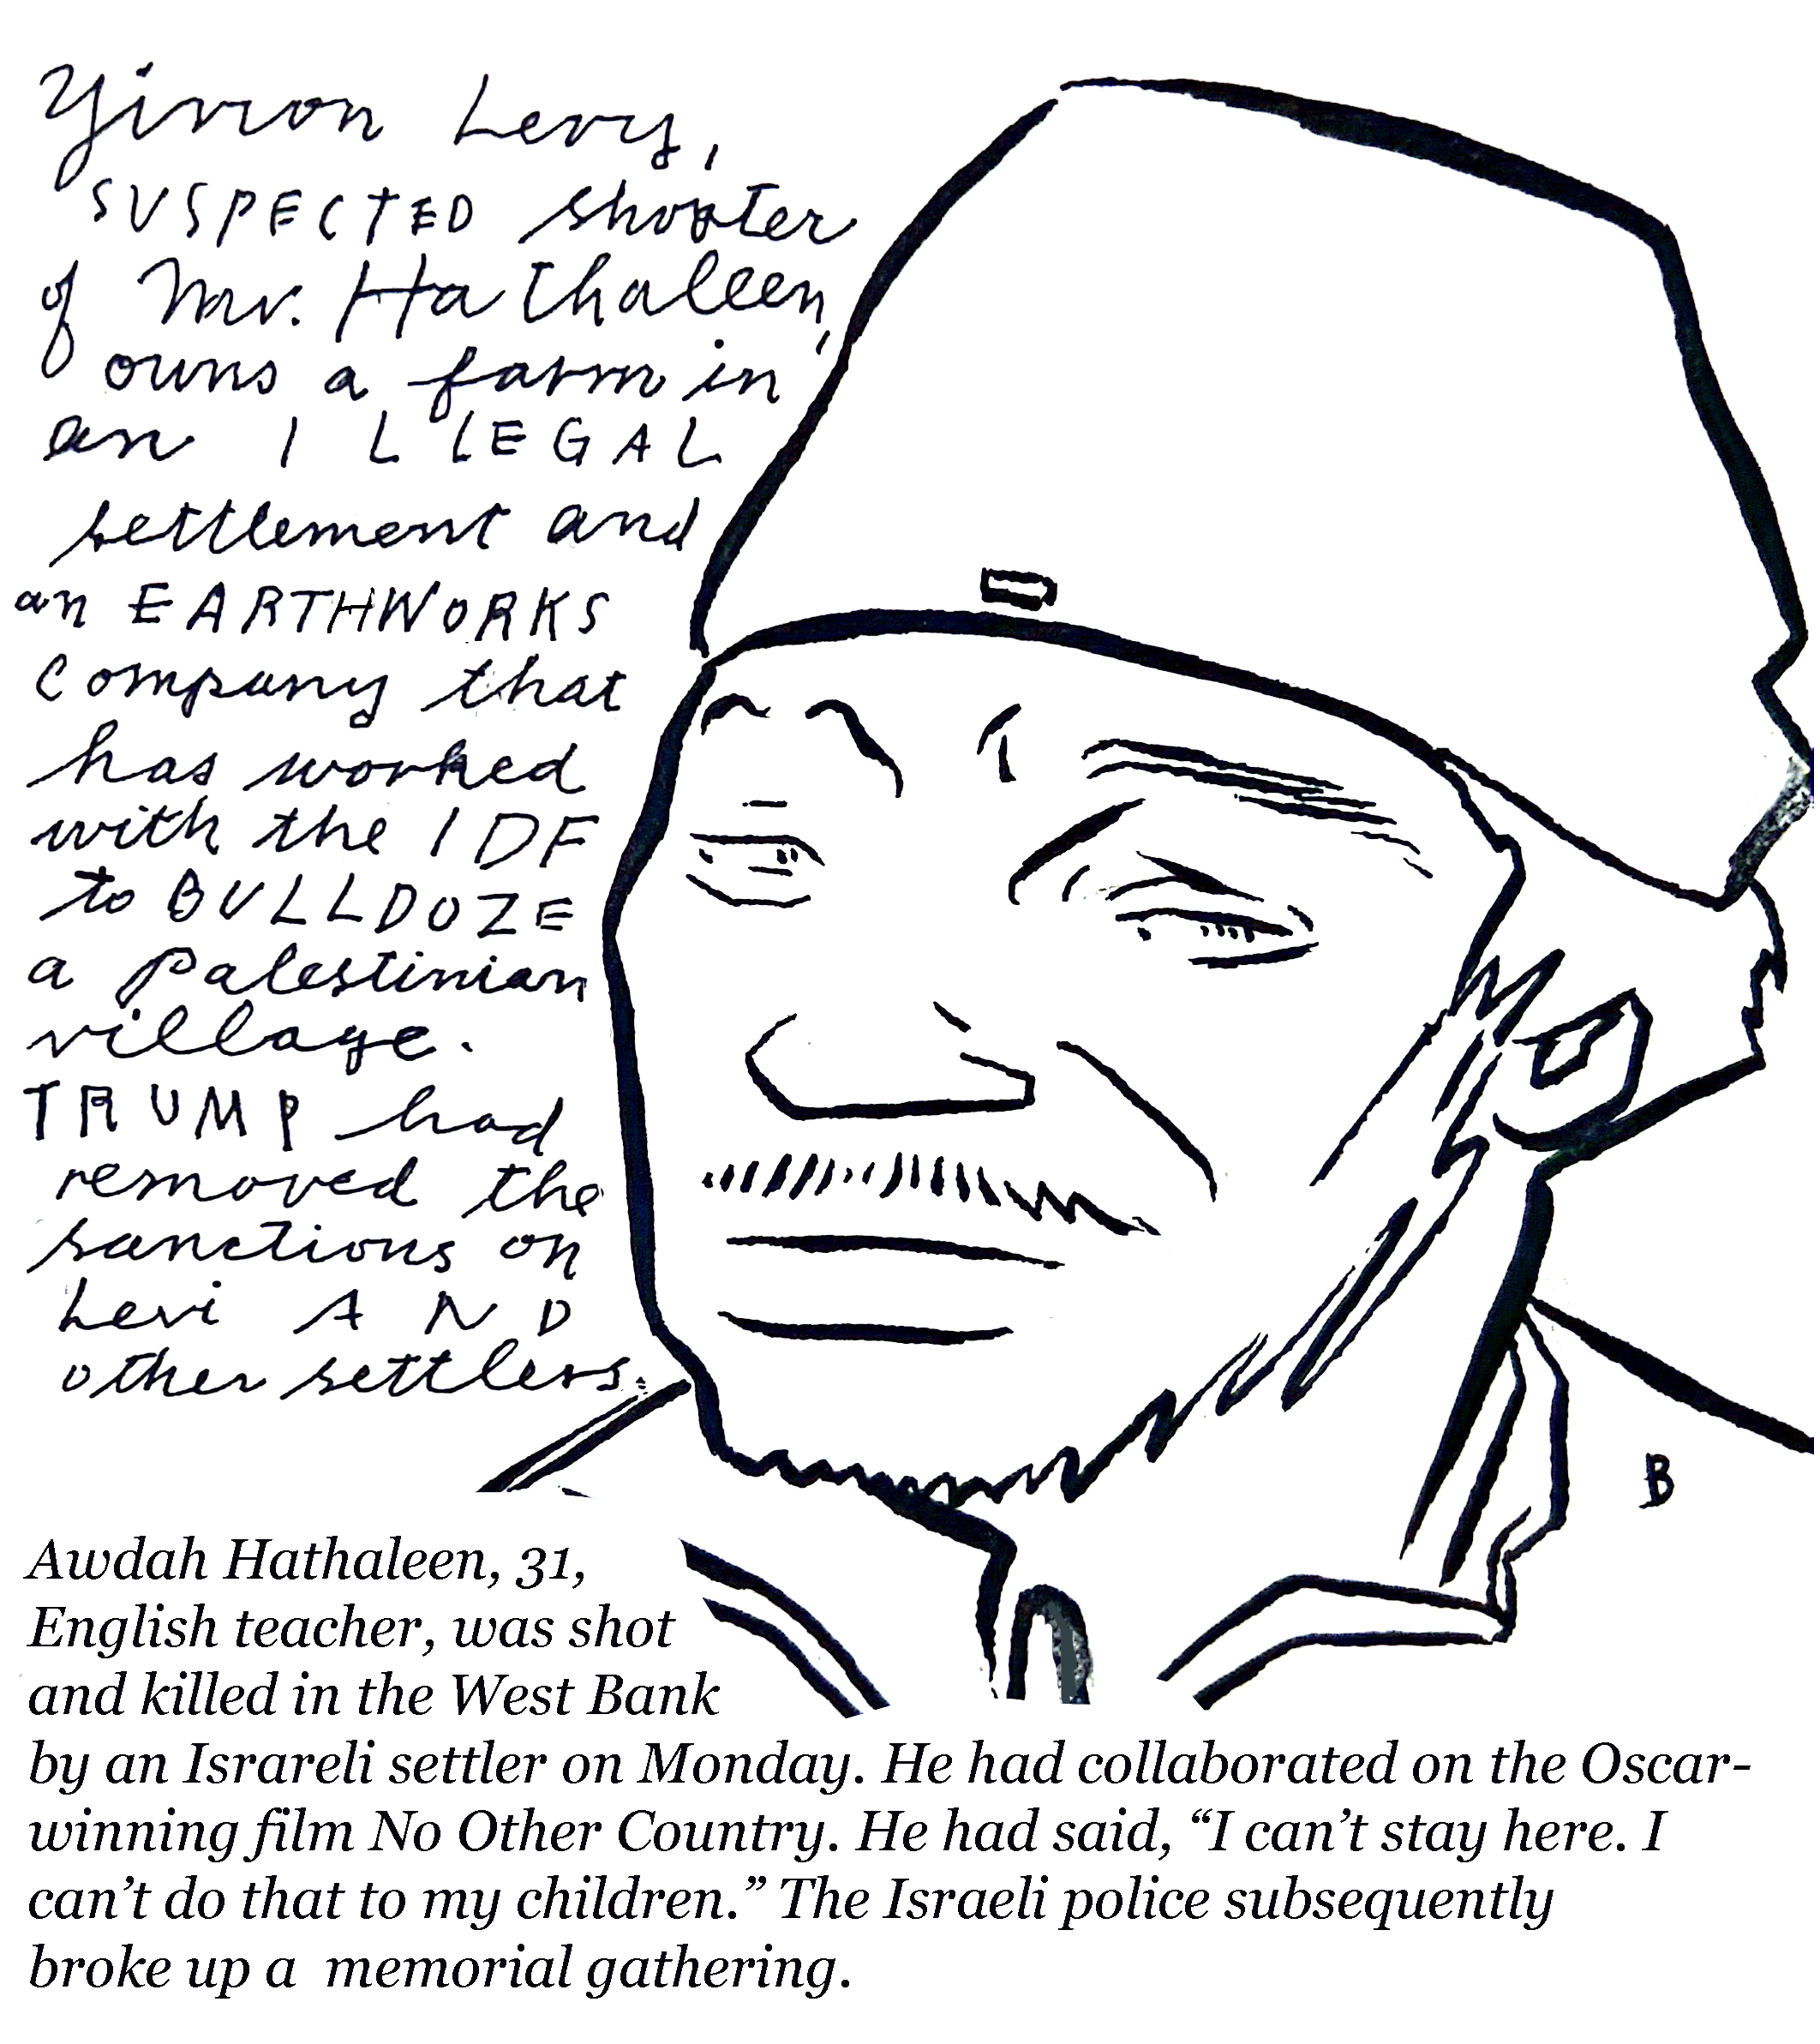 Yinon Levy,
SUSPECTED shooter
of Mr. Hathaleen,
owns a farm in
an ILLEGAL
settlement and
an EARTHWORKS
Company that
has worked
with the IDF
to BULLDOZE
a Palestinian
village.
TRUMP had
removed the
sanctions on
Levi AND
other settlers.
B
Awdah Hathaleen, 31,
English teacher, was shot
and killed in the West Bank
by an Israreli settler on Monday. He had collaborated on the Oscar-
winning film No Other Country. He had said, “I can’t stay here. I
can’t do that to my children.” The Israeli police subsequently
broke up a memorial gathering.